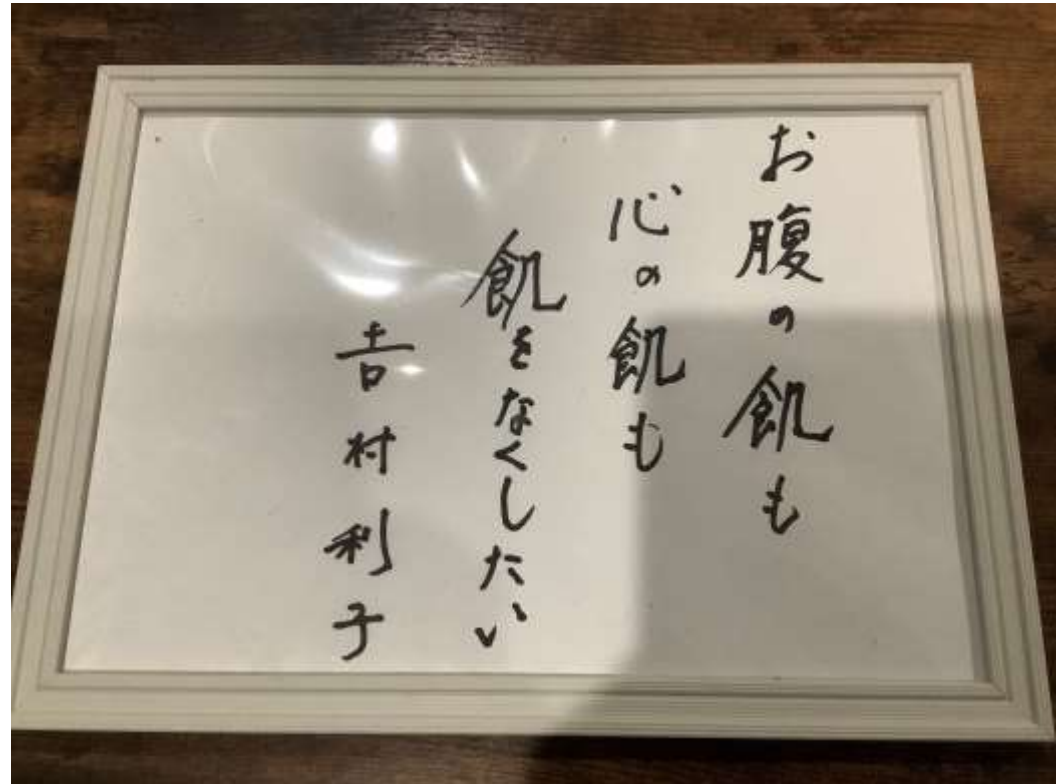 お腹の飢も
心の飢も
飢をなくしたい
吉村利子